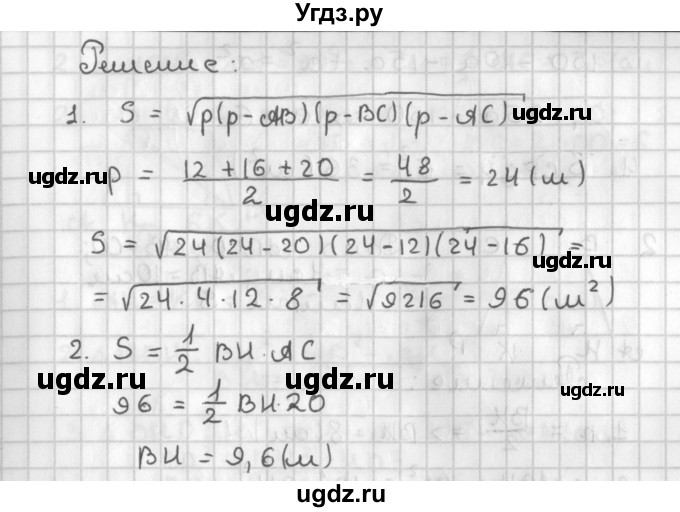 Угдз.ру
Решение:
1. S = √p(p-AB)(p-BC)(p-AC)
ugdz.ru
ugdz.ru
p = 12+16+20/2 = 48/2 = 24(м)
ugdz.ru
S = √24(24-20)(24-12)(24-16) =
ugdz.ru
= √24·4·12·8 = √9216 = 96(м²)
2. S = 1/2 BH·AC
ugdz.ru
ugdz.ru
ugdz.ru
96 = 1/2 BH·20
BH = 9,6(м)
ugdz.ru
ugdz.ru